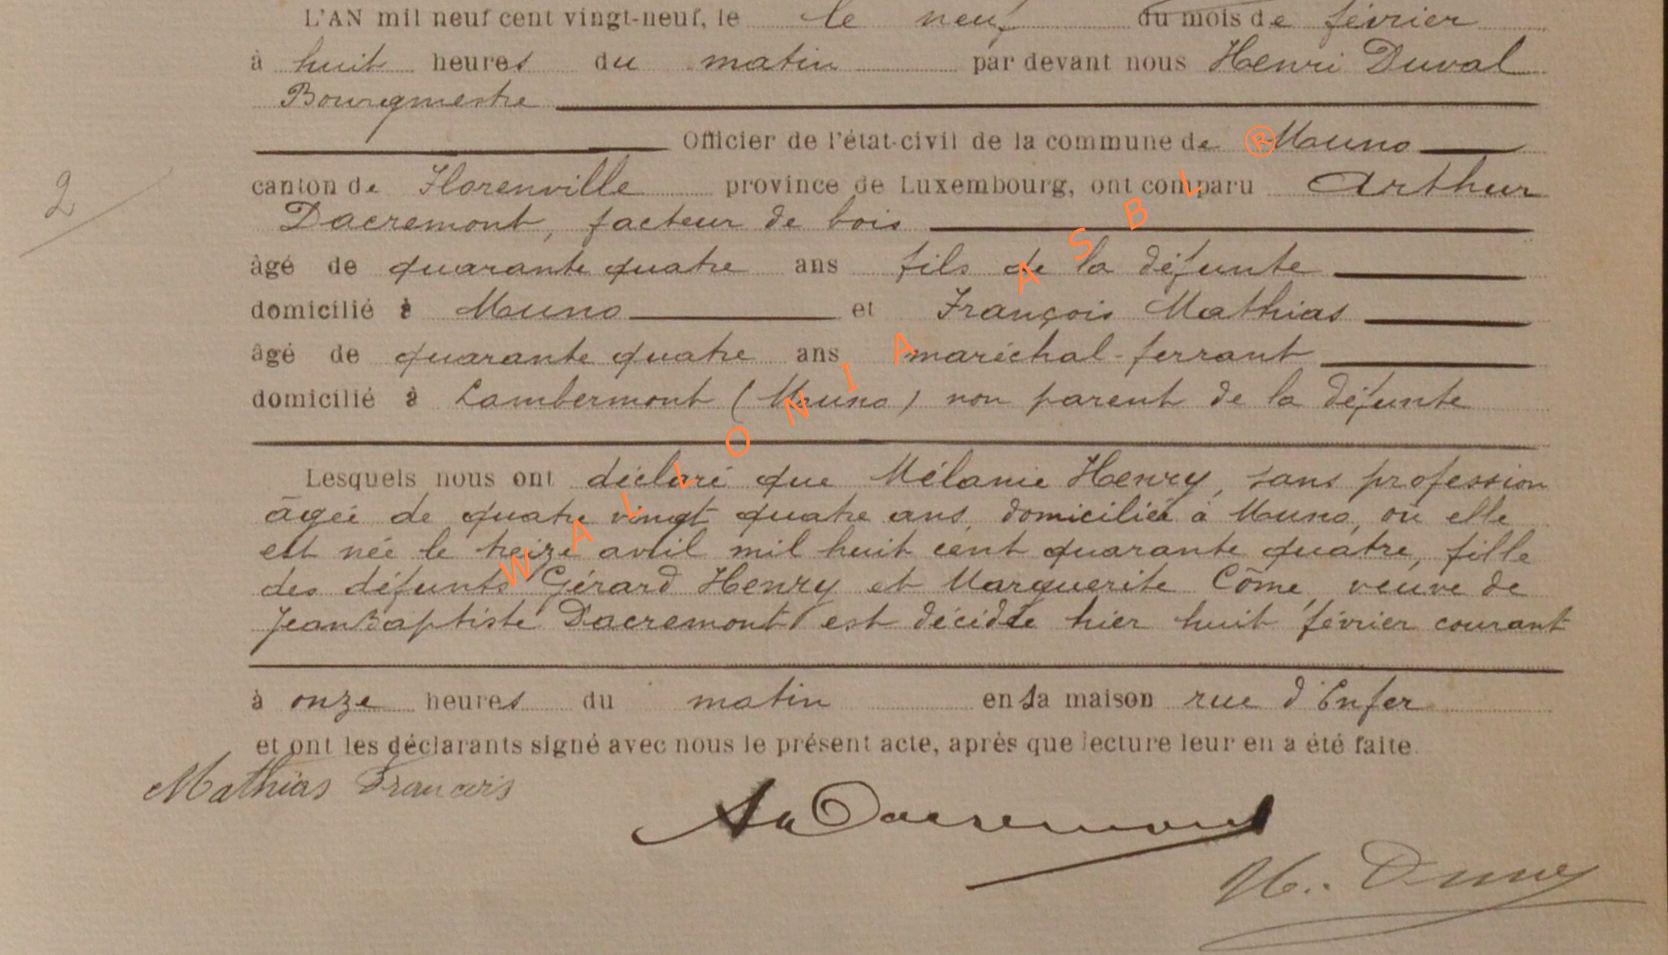 L'AN mil neuf cent vingt-neuf, le le neuf du mois de février
à huit heures du matin par devant nous Henri Duval
Bourgmestre
Officier de l'état-civil de la commune de Muno
2
canton de Florenville province de Luxembourg, ont comparu Arthur
Dacremont, facteur de bois
âgé de quarante quatre ans fils de la défunte
domicilié à Muno et François Mathias
âgé de quarante quatre ans maréchal-ferrant
domicilié à Lambermont (Muno) non parent de la défunte
Lesquels nous ont déclaré que Mélanie Henry, sans profession
âgée de quatre vingt quatre ans, domiciliée à Muno, où elle
est née le treize avril mil huit cent quarante quatre, fille
des défunts Gérard Henry et Marguerite Côme, veuve de
Jean Baptiste Dacremont est décidée hier huit février courant
à onze heures du matin en sa maison rue d'Enfer
et ont les déclarants signé avec nous le présent acte, après que lecture leur en a été faite.
Mathias François
Dacremont
H. Duval
® WALLONIA ASBL